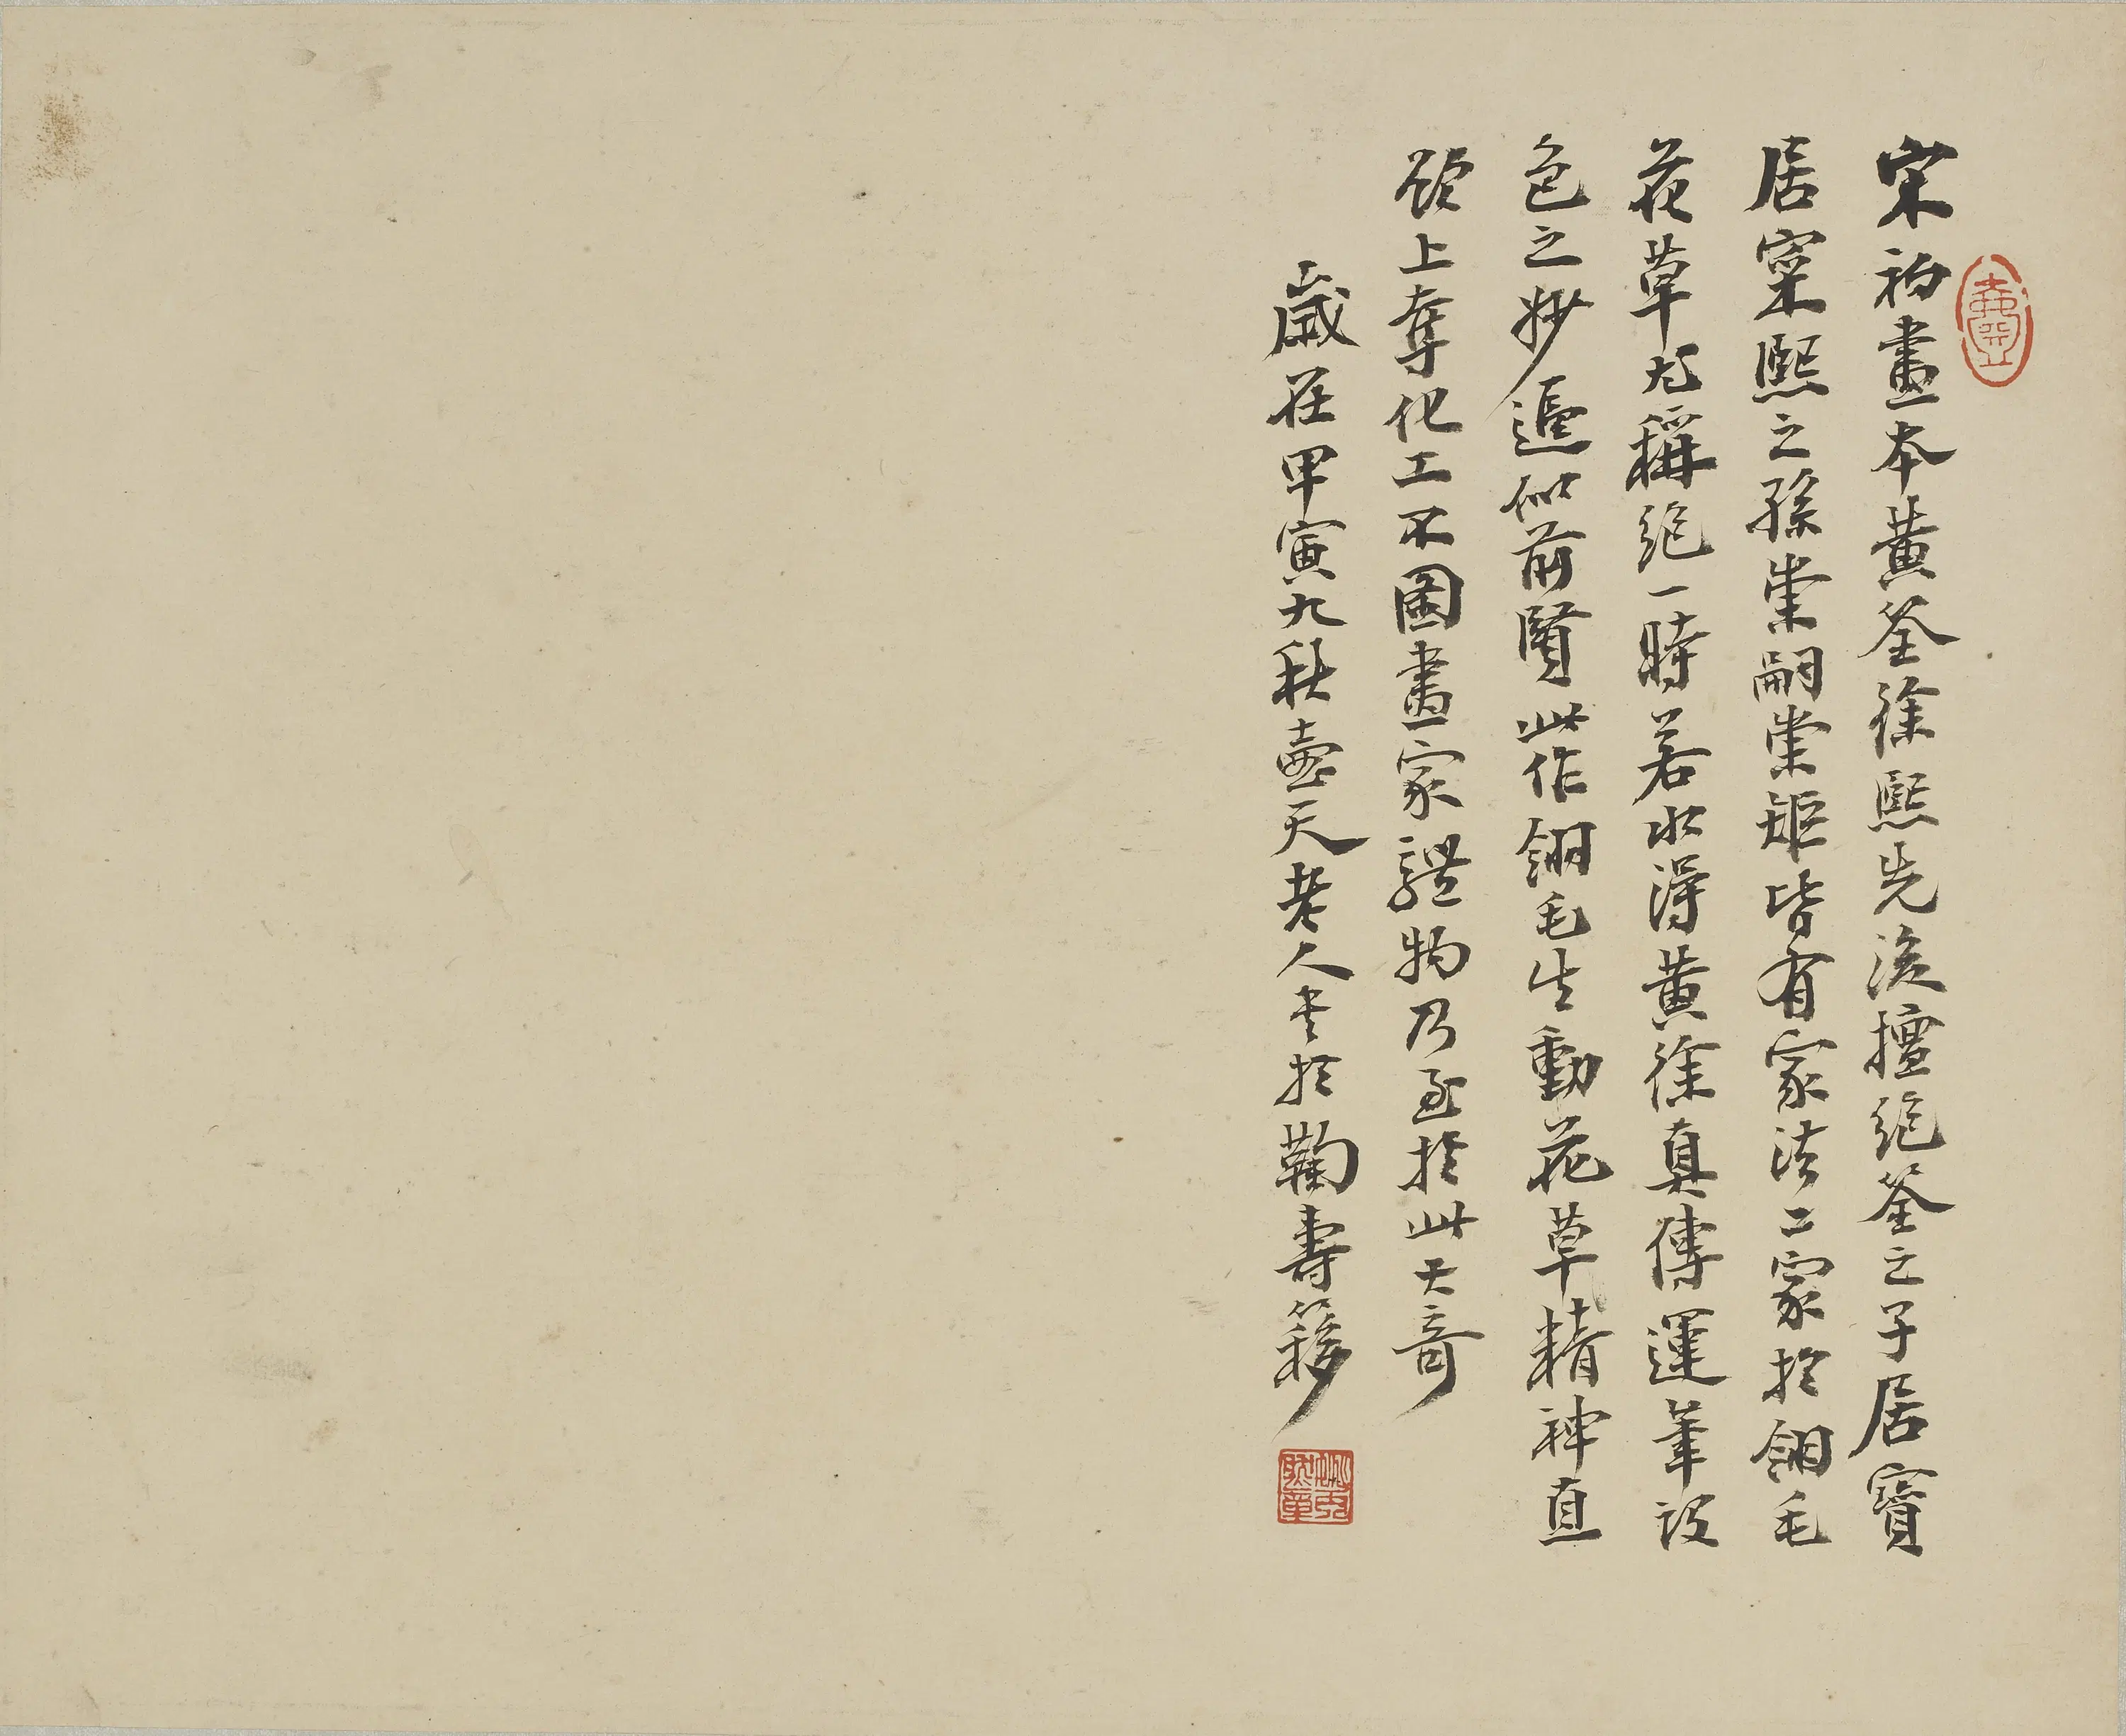 宋初畫本黃筌徐熙先後擅絕筌之子居寶
居寀熙之孫崇嗣崇矩皆有家法二家於翎毛
花草尤稱絕一時若水得黃徐真傳運筆設
色之妙逼似前賢此作翎毛生動花草精神直
欲上奪化工不圖畫家體物乃至於此大奇
歲在甲寅九秋壺天老人書於鞠壽簃